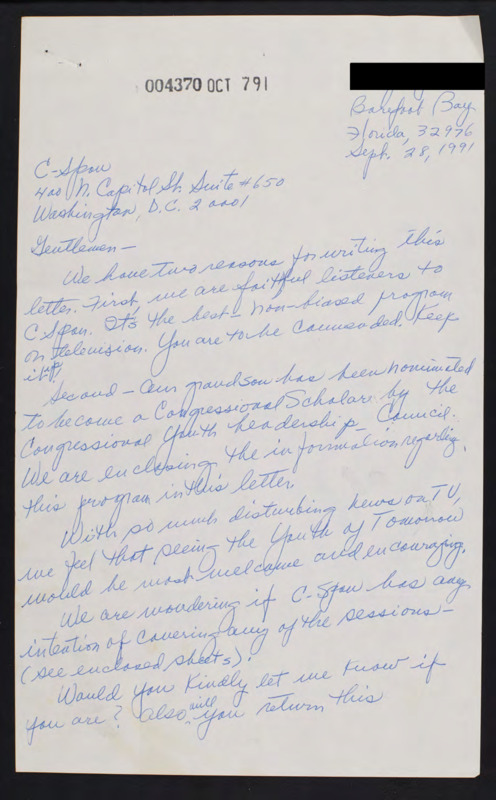 004370 OCT 791
Barefoot Bay
Florida, 32976
Sept. 28, 1991
C-Span
400 N. Capitol St. Suite #650
Washington, D.C. 20001
Gentlemen—
We have two reasons for writing this
letter. First, we are faithful listeners to
C Span. It's the best non-biased program
on television. You are to be commended. Keep
it up!
Second — Our grandson has been nominated
to become a Congressional Scholar by the
Congressional Youth Leadership Council.
We are enclosing the information regarding
this program in this letter.
With so much disturbing news on TV,
we feel that seeing the Youth of Tomorrow
would be most welcome and encouraging.
We are wondering if C-Span has any
intention of covering any of the sessions—
(see enclosed sheets).
Would you kindly let me know if
you are? Also, will you return this